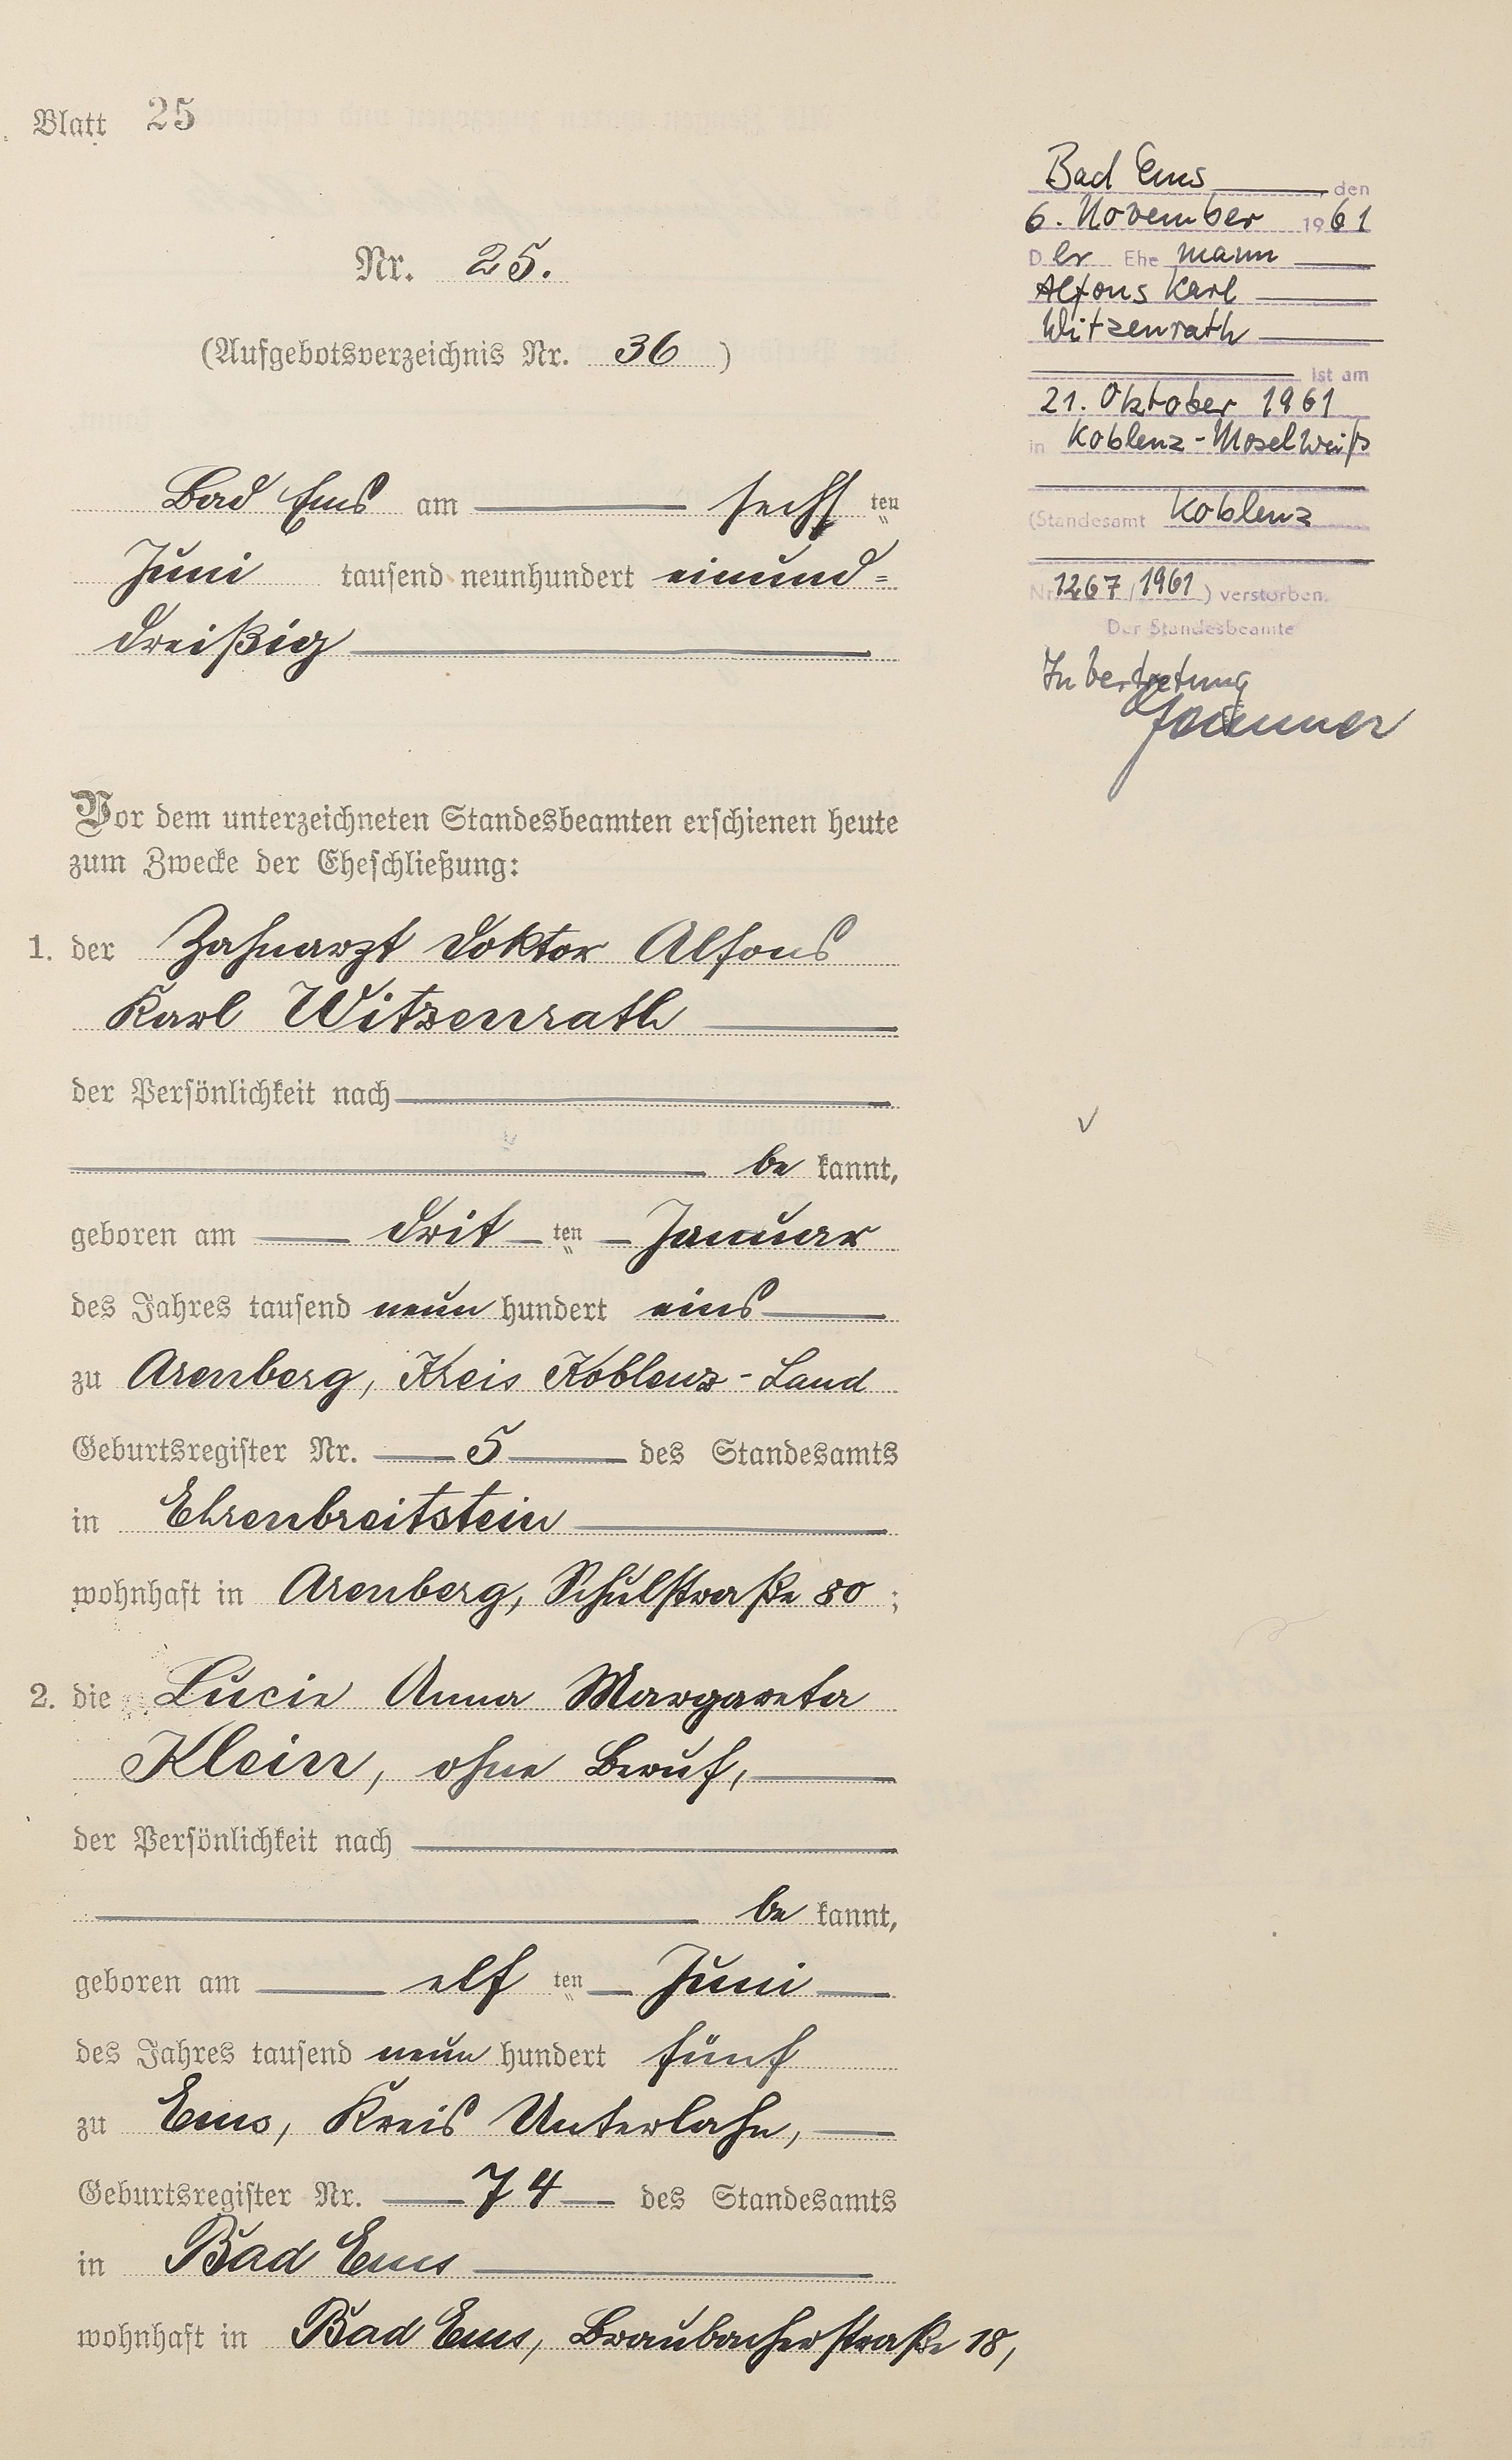 Blatt 25
Nr. 25.
(Aufgebotsverzeichnis Nr. 36 )
Bad Ems am sechsten
Juni tausend neunhundert einund=
dreißig
Vor dem unterzeichneten Standesbeamten erschienen heute
zum Zwecke der Eheschließung:
1. der Zahnarzt Doktor Alfons
Karl Witzenrath
der Persönlichkeit nach
be kannt,
geboren am drit ten Januar
des Jahres tausend neun hundert eins
zu Arenberg, Kreis Koblenz-Land
Geburtsregister Nr. 5 des Standesamts
in Ehrenbreitstein
wohnhaft in Arenberg, Schulstraße 80 ;
2. die Lucie Anna Margareta
Klein, ohne Beruf,
der Persönlichkeit nach
be kannt,
geboren am elf ten Juni
des Jahres tausend neun hundert fünf
zu Ems, Kreis Unterlahn,
Geburtsregister Nr. 74 des Standesamts
in Bad Ems
wohnhaft in Bad Ems, Braubacherstraße 18,
Bad Ems, den
6. November 1961
Der Ehemann
Alfons Karl
Witzenrath
ist am
21. Oktober 1961
in Koblenz-Moselweiß
(Standesamt Koblenz
Nr. 1267/1961) verstorben.
Der Standesbeamte
In Vertretung